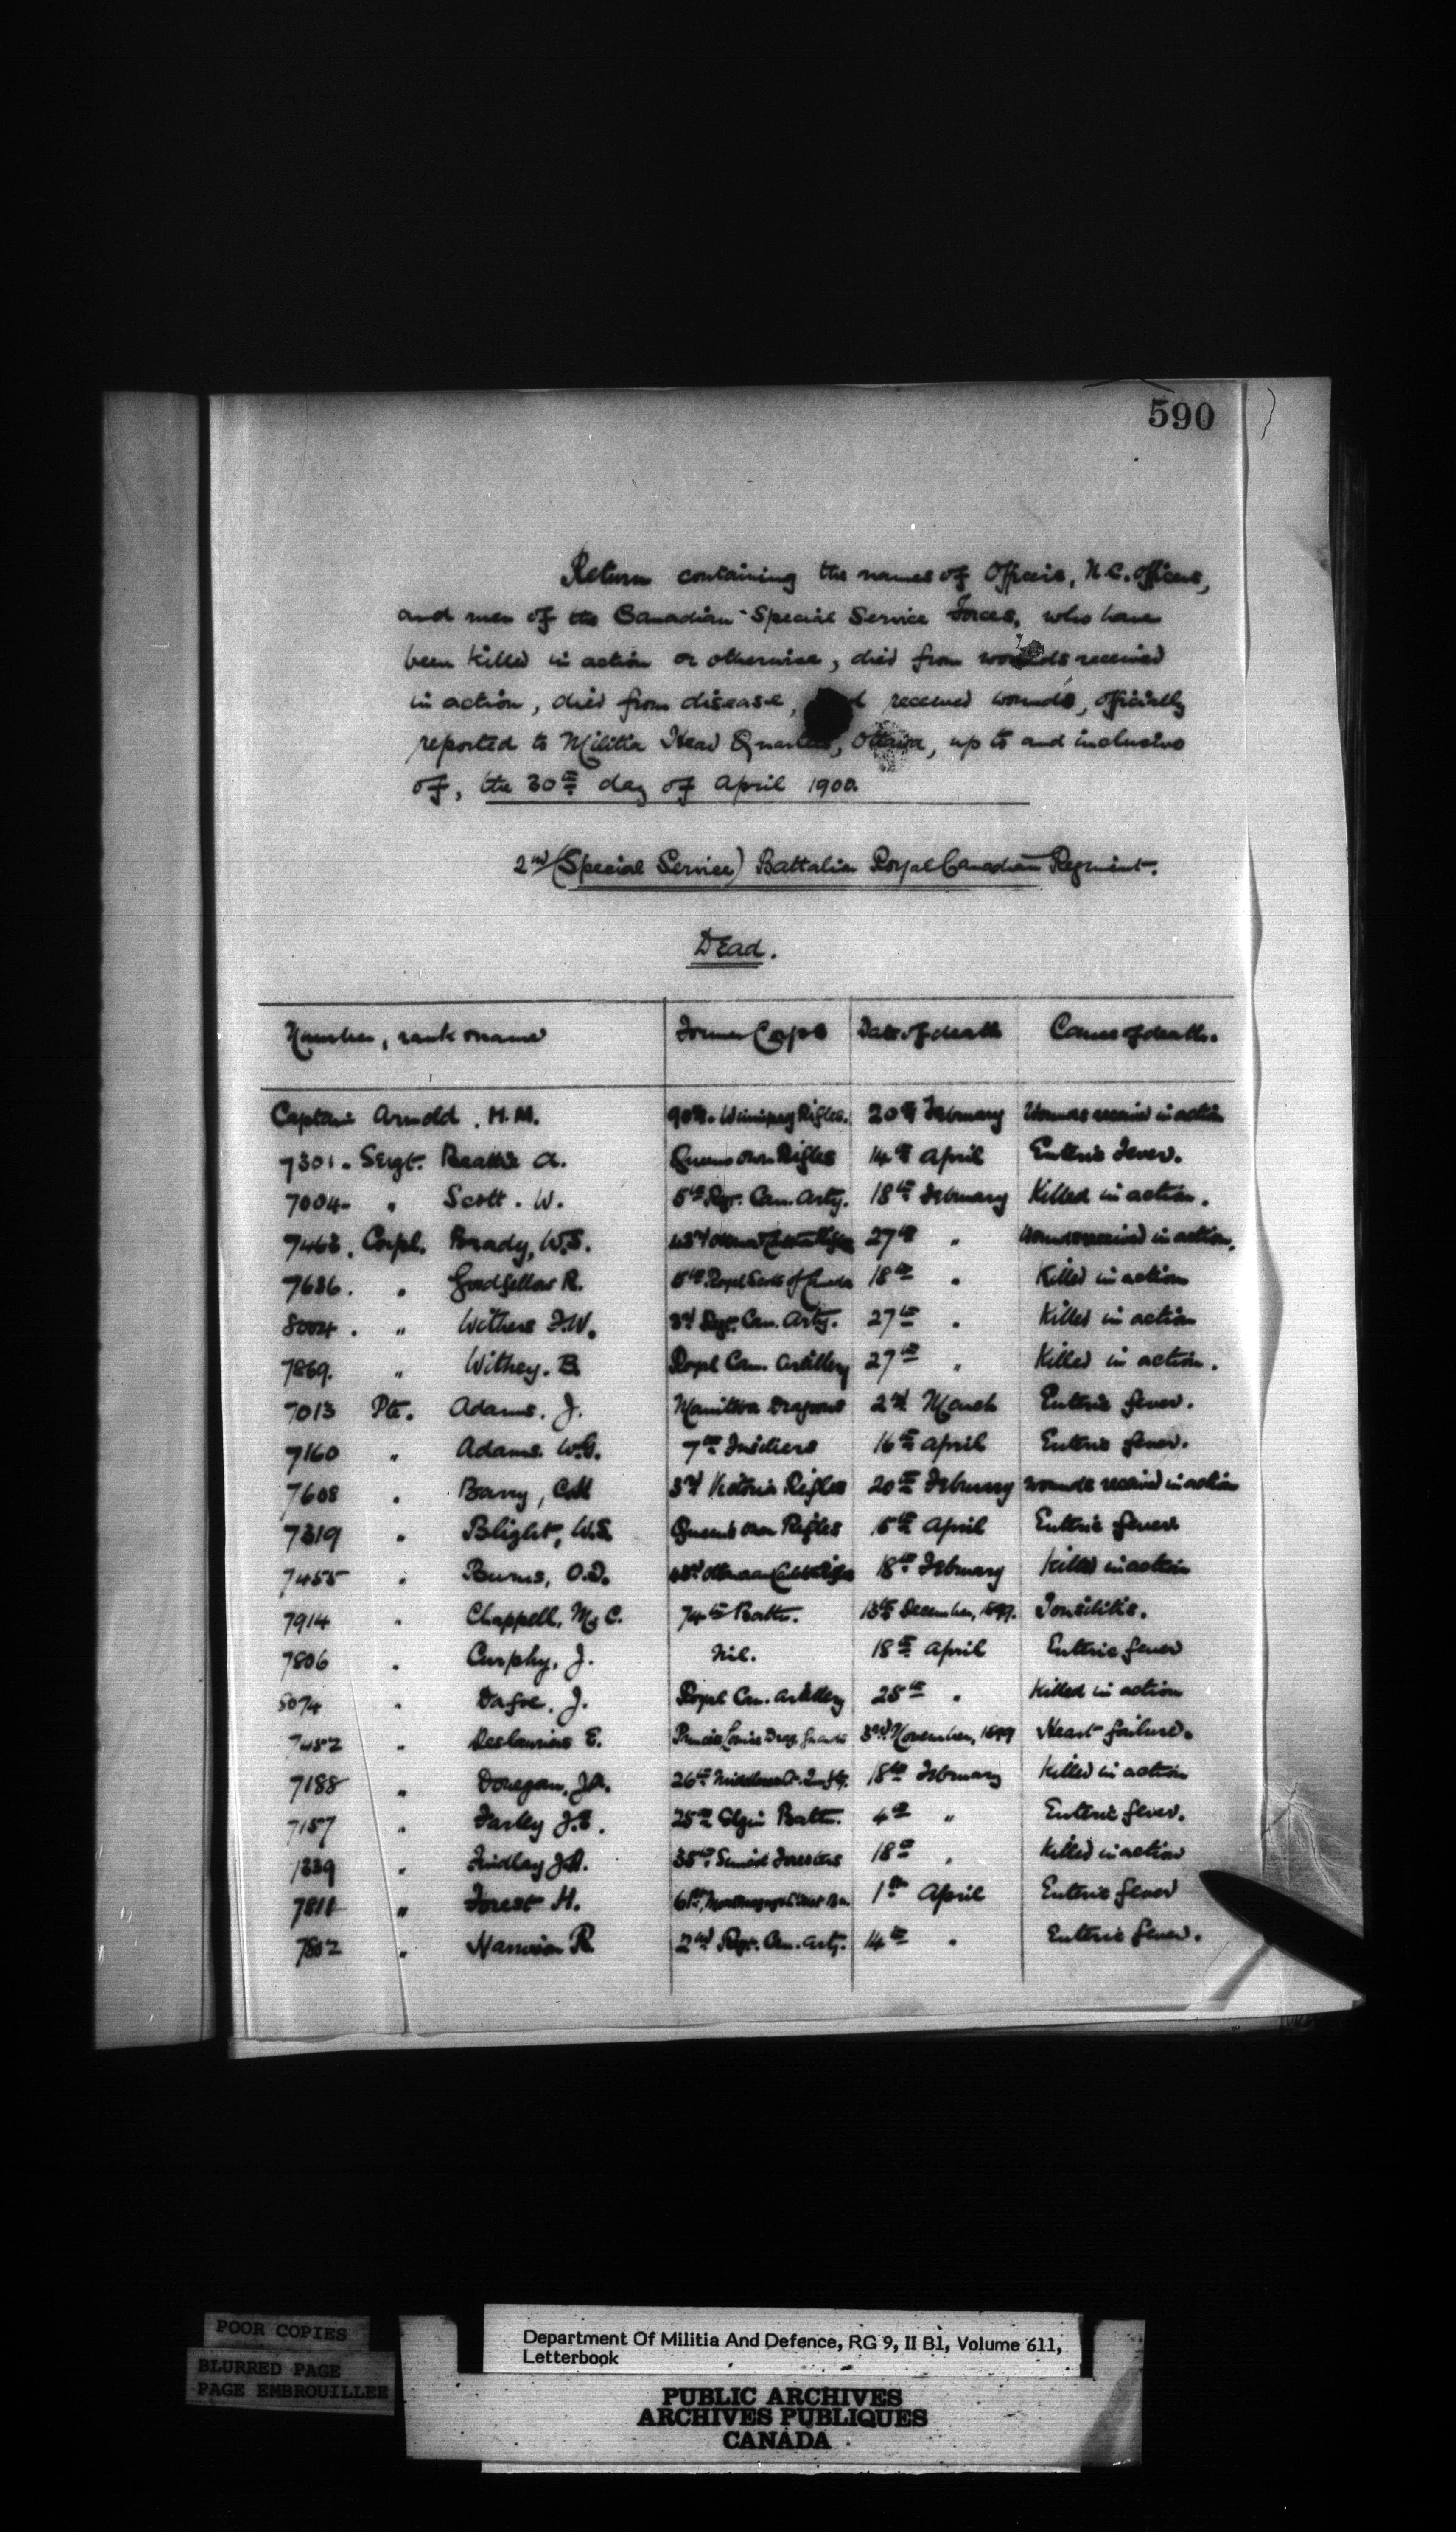 590
Return containing the names of Officers, N.C. Officers,
and men of the Canadian Special Service Forces, who have
been killed in action or otherwise, died from wounds received
in action, died from disease, received wounds, officially
reported to Militia Head Quarters, Ottawa, up to and inclusive
of, the 30th day of April 1900.
2nd (Special Service) Battalion Royal Canadian Regiment.
Dead.
Number, rank & name Former Corps Date of death Cause of death.
Captain Arnold. H.M. 90th. Winnipeg Rifles. 20th February Wounds received in action
7301. Sergt. Beattie A. Queens Own Rifles 14th April Enteric Fever.
7004 " Scott. W. 5th Regt. Can. Arty. 18th February Killed in action.
7463. Corpl. Brady, W.S. 43rd Ottawa & Carleton Rifles 27th " Wounds received in action.
7636. " Goodfellow R. 5th Royal Scots of Canada 18th " Killed in action
8004. " Withers F.W. 3rd Regt. Can. Arty. 27th " Killed in action
7869. " Withey. B. Royal Can. Artillery 27th " Killed in action.
7013 Pte. Adams. J. Manitoba Dragoons 2nd March Enteric fever.
7160 " Adams. W.G. 7th Fusiliers 16th April Enteric fever.
7608 " Barry, C.H 3rd Victoria Rifles 20th February wounds received in action
7319 " Blight, W.S. Queen's Own Rifles 15th April Enteric fever.
7455 " Burns, O.T. 43rd Ottawa & Carleton Rifles 18th February Killed in action
7914 " Chappell, M. C. 74th Battn. 13th December, 1899. Tonsilitis.
7806 " Curphy, J. Nil. 18th April Enteric fever
8074 " Dafoe, J. Royal Can. Artillery 25th " Killed in action
7452 " Deslauries E. Princess Louise Drag. Guards 3rd November, 1899 Heart failure.
7188 " Donegan, J.A. 26th Middlesex Lt. Infty. 18th February Killed in action
7157 " Farley J.E. 25th Elgin Battn. 4th " Enteric fever.
1339 " Findlay J.H. 35th Simcoe Foresters 18th " Killed in action
7811 " Forest H. 61st, 1st April Enteric fever
7802 " Harrison R 2nd Regt. Can. Arty. 14th " Enteric fever.
POOR COPIES
BLURRED PAGE
PAGE EMBROUILLEE
Department Of Militia And Defence, RG 9, II B1, Volume 611,
Letterbook
PUBLIC ARCHIVES
ARCHIVES PUBLIQUES
CANADA